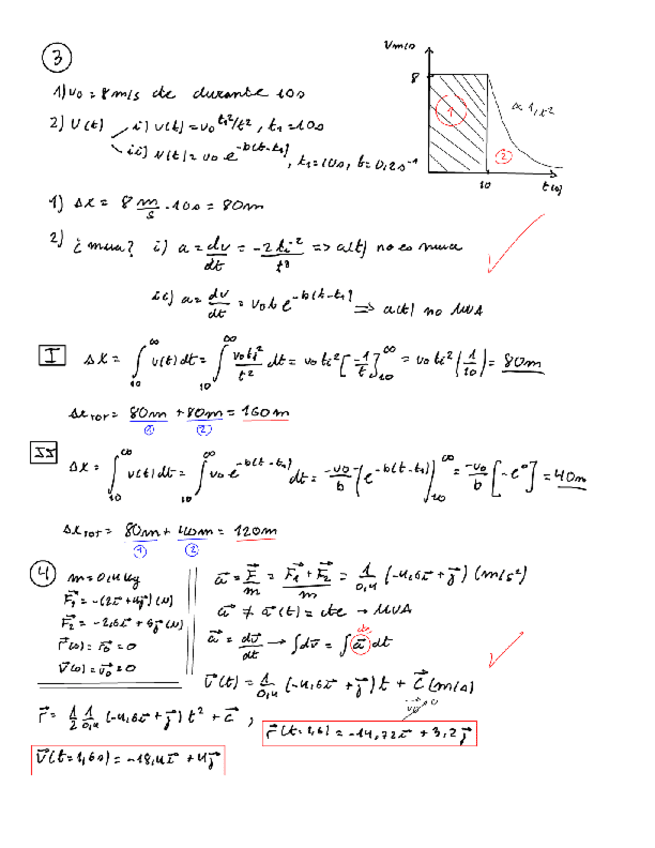 3
V m/s
8
1
2
∝ 1/t²
10
t(s)
1) v₀ = 8 m/s cte durante 10s
2) v(t) i) v(t) = v₀ t₁²/t², t₁ = 10s
ii) v(t) = v₀ e^{-b(t-t₁)}, t₁ = 10s, b = 0,2 s⁻¹
1) Δx = 8 m/s · 10s = 80m
2) ¿mrua? i) a = dv/dt = -2 t₁²/t³ => a(t) no es mrua
ii) a = dv/dt = v₀ b e^{-b(t-t₁)} => a(t) no MUA
I Δx = ∫₁₀^∞ v(t) dt = ∫₁₀^∞ v₀t₁²/t² dt = v₀ t₁² [-1/t]₁₀^∞ = v₀ t₁² (1/10) = 80m
Δx TOT = 80m + 80m = 160m
① ②
II Δx = ∫₁₀^∞ v(t) dt = ∫₁₀^∞ v₀ e^{-b(t-t₁)} dt = -v₀/b [e^{-b(t-t₁)}]₁₀^∞ = -v₀/b [-e⁰] = 40m
Δx TOT = 80m + 40m = 120m
① ②
4
m = 0,4 kg
F⃗₁ = -(2i⃗ + 4j⃗) (N)
F⃗₂ = -2,6i⃗ + 5j⃗ (N)
r⃗(0) = r⃗₀ = 0
v⃗(0) = v⃗₀ = 0
a⃗ = F⃗/m = (F⃗₁ + F⃗₂)/m = 1/0,4 (-4,6i⃗ + j⃗) (m/s²)
a⃗ ≠ a⃗(t) = cte → MUA
cte
a⃗ = dv⃗/dt → ∫dv⃗ = ∫a⃗ dt
v⃗(t) = 1/0,4 (-4,6i⃗ + j⃗) t + C⃗ (m/s)
v⃗₀ 0
r⃗ = 1/2 1/0,4 (-4,6i⃗ + j⃗) t² + C⃗ ; r⃗(t=1,6) = -14,72i⃗ + 3,2j⃗
v⃗(t=1,6s) = -18,4i⃗ + 4j⃗